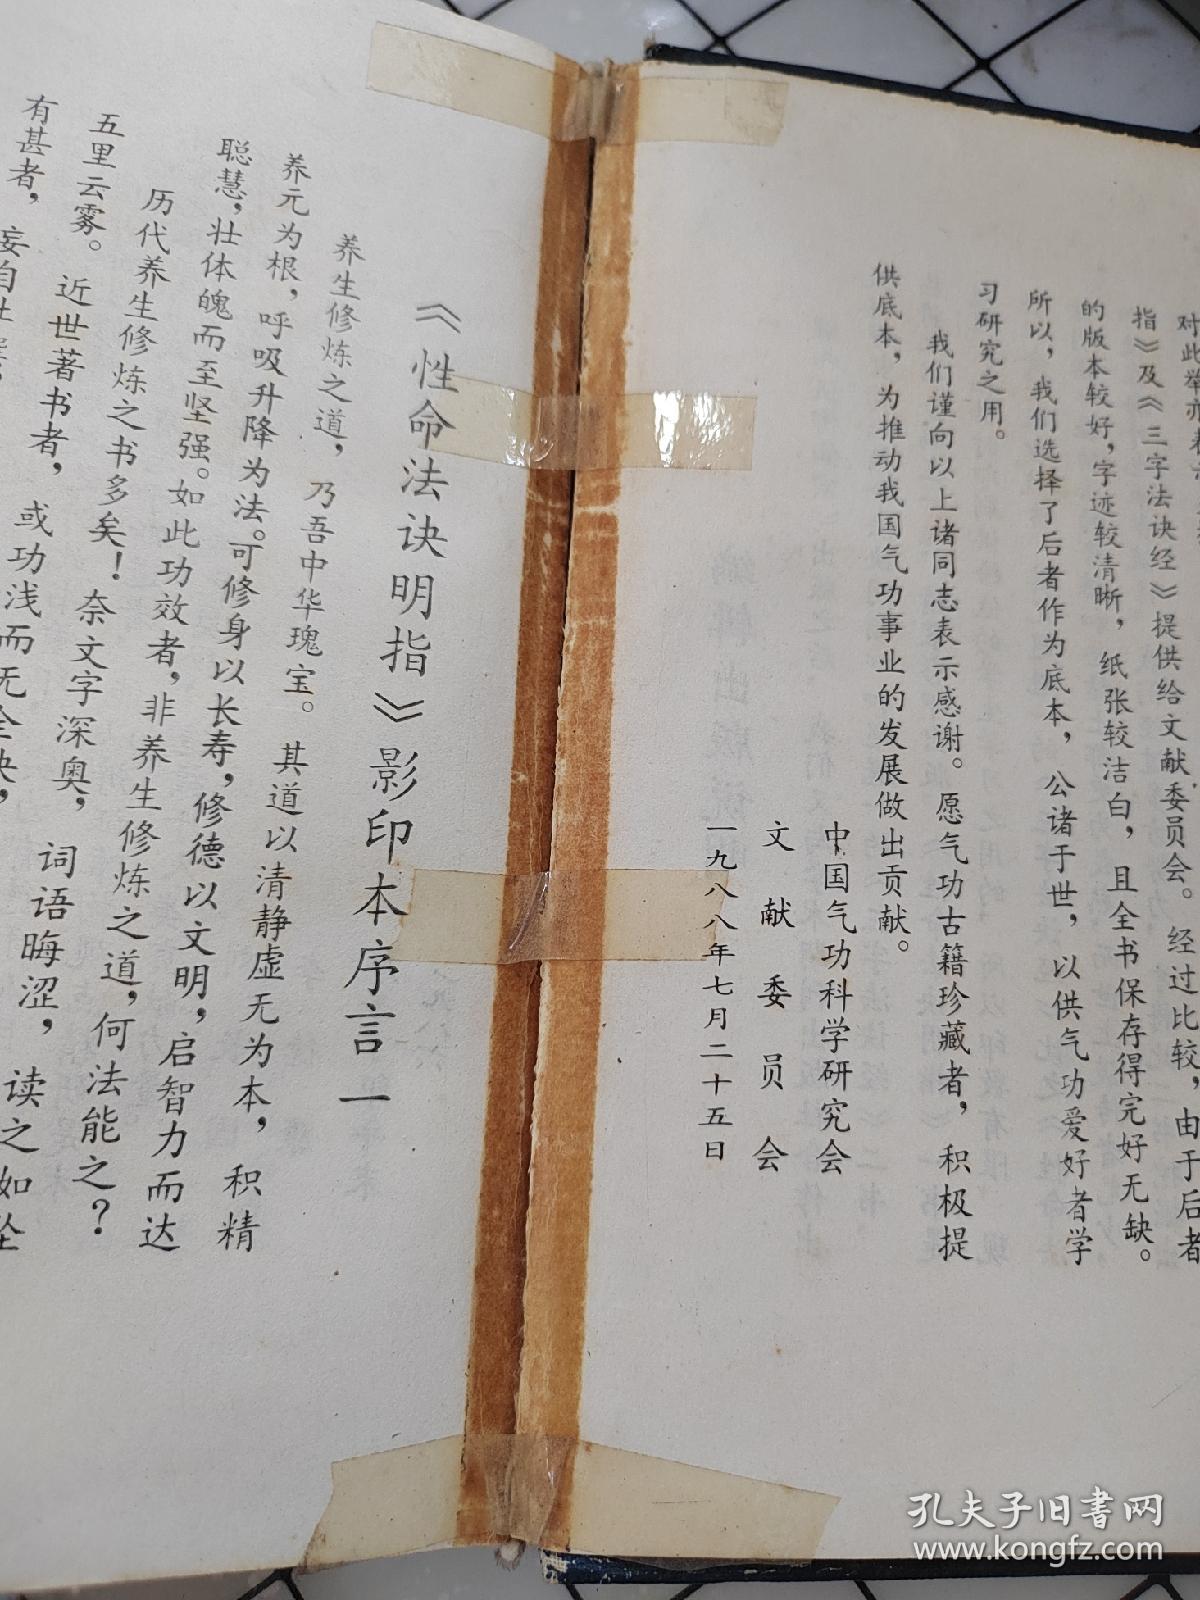 对此举亦表
指》及《三字法诀经》提供给文献委员会。经过比较，由于后者
的版本较好，字迹较清晰，纸张较洁白，且全书保存得完好无缺。
所以，我们选择了后者作为底本，公诸于世，以供气功爱好者学
习研究之用。
我们谨向以上诸同志表示感谢。愿气功古籍珍藏者，积极提
供底本，为推动我国气功事业的发展做出贡献。
中国气功科学研究会
文献委员会
一九八八年七月二十五日
《性命法诀明指》影印本序言一
养生修炼之道，乃吾中华瑰宝。其道以清静虚无为本，积精
养元为根，呼吸升降为法。可修身以长寿，修德以文明，启智力而达
聪慧，壮体魄而至坚强。如此功效者，非养生修炼之道，何法能之？
历代养生修炼之书多矣！奈文字深奥，词语晦涩，读之如坠
五里云雾。近世著书者，或功浅而无全诀，
有甚者，妄自杜撰，
孔夫子旧书网
www.kongfz.com